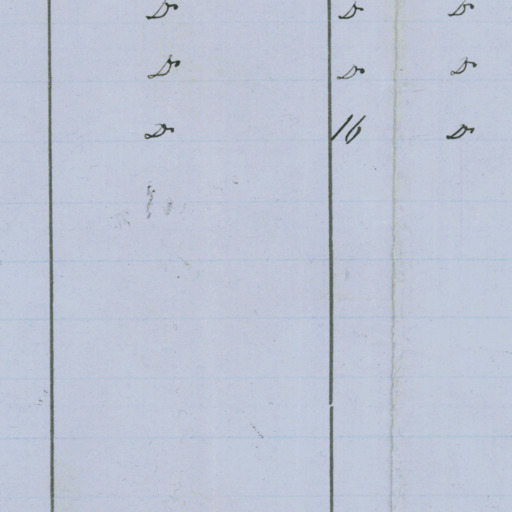 Do Do Do
Do Do Do
Do 16 Do